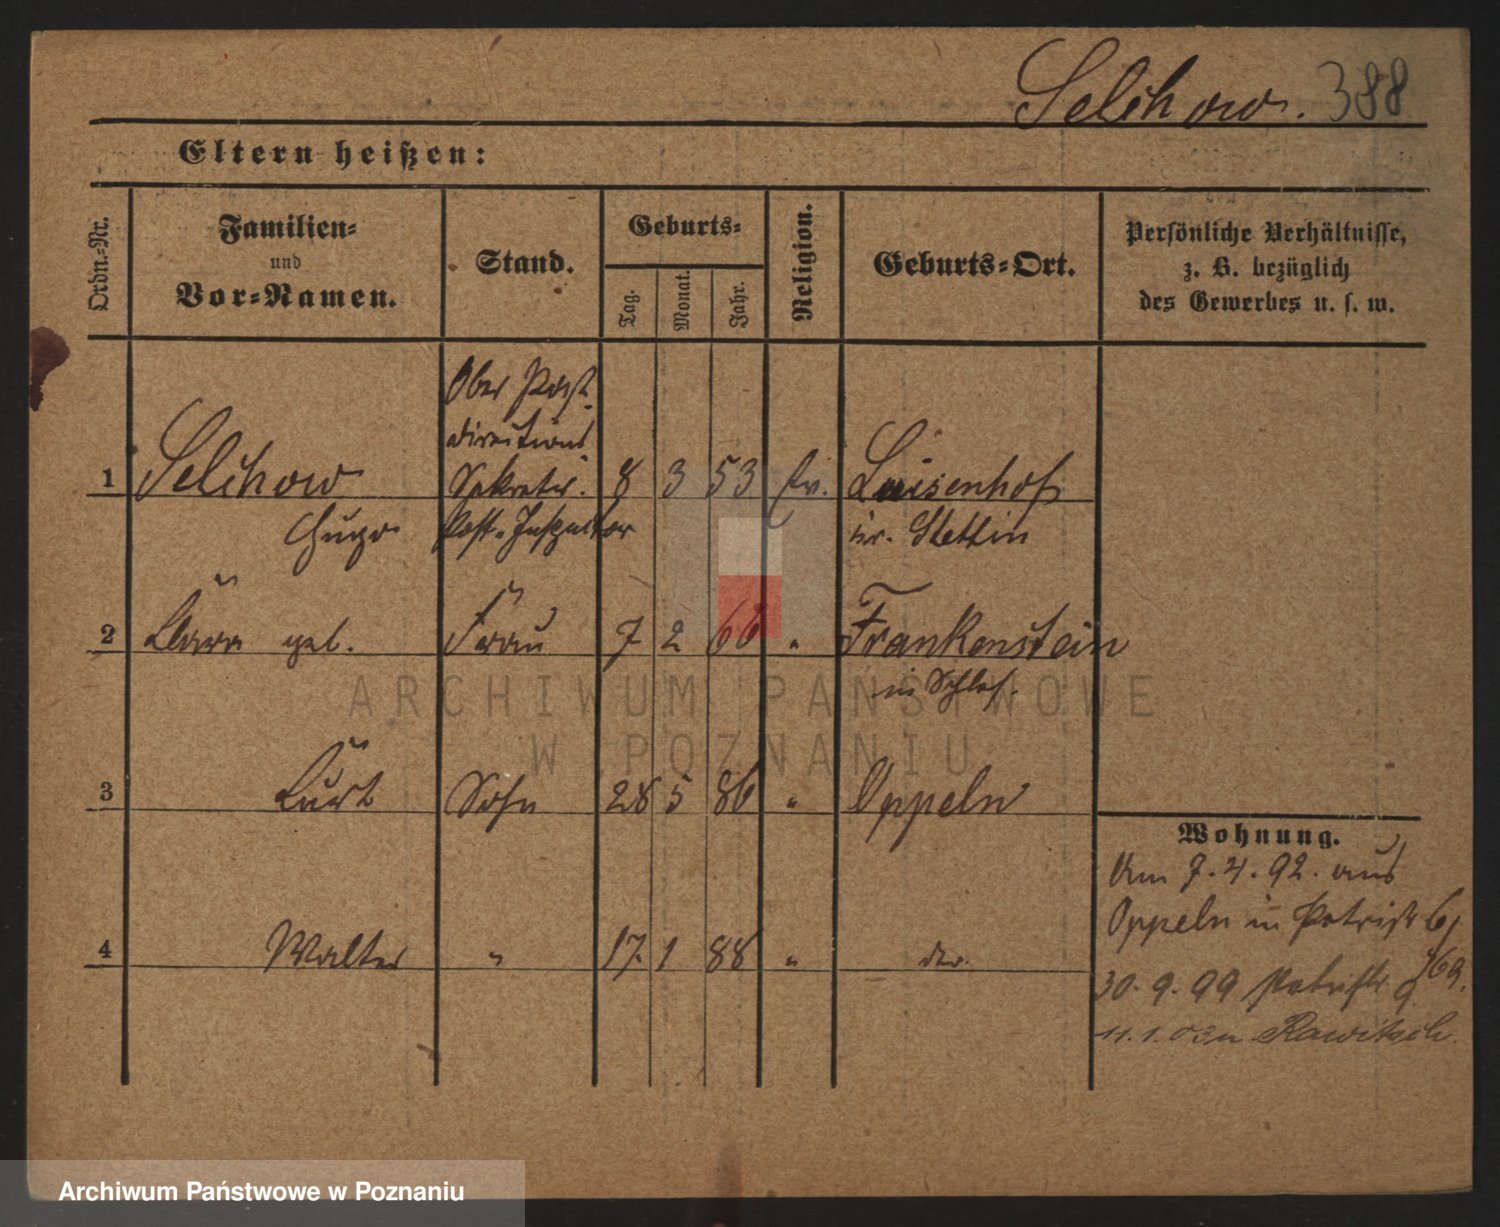 Selchow. 388
Eltern heißen:
Ordn.-Nr.
Familien-
und
Vor-Namen.
Stand.
Geburts-
Tag.
Monat.
Jahr.
Religion.
Geburts-Ort.
Persönliche Verhältnisse,
z. B. bezüglich
des Gewerbes u. s. w.
Ober Post-
direktions
1 Selchow Sekretär. 8 3 53 Ev. Luisenhof
Hugo Post-Inspector Kr. Stettin
2 Clara geb. Frau 7 2 66 " Frankenstein
in Schles.
3 Curt Sohn 28 5 86 " Oppeln
4 Walter " 17. 1 88 "
Wohnung.
Am 7.4.92. aus
Oppeln in Petristr 6,
30.9.99 Petristr. 9
11.1.03 n Rawitsch.
ARCHIWUM PAŃSTWOWE
W POZNANIU
Archiwum Państwowe w Poznaniu